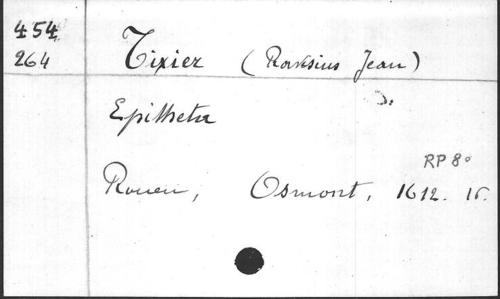 454
264
Tixier (Ravisius Jean)
Epitheta
RP 8°
Rouen, Osmont, 1612. 16.